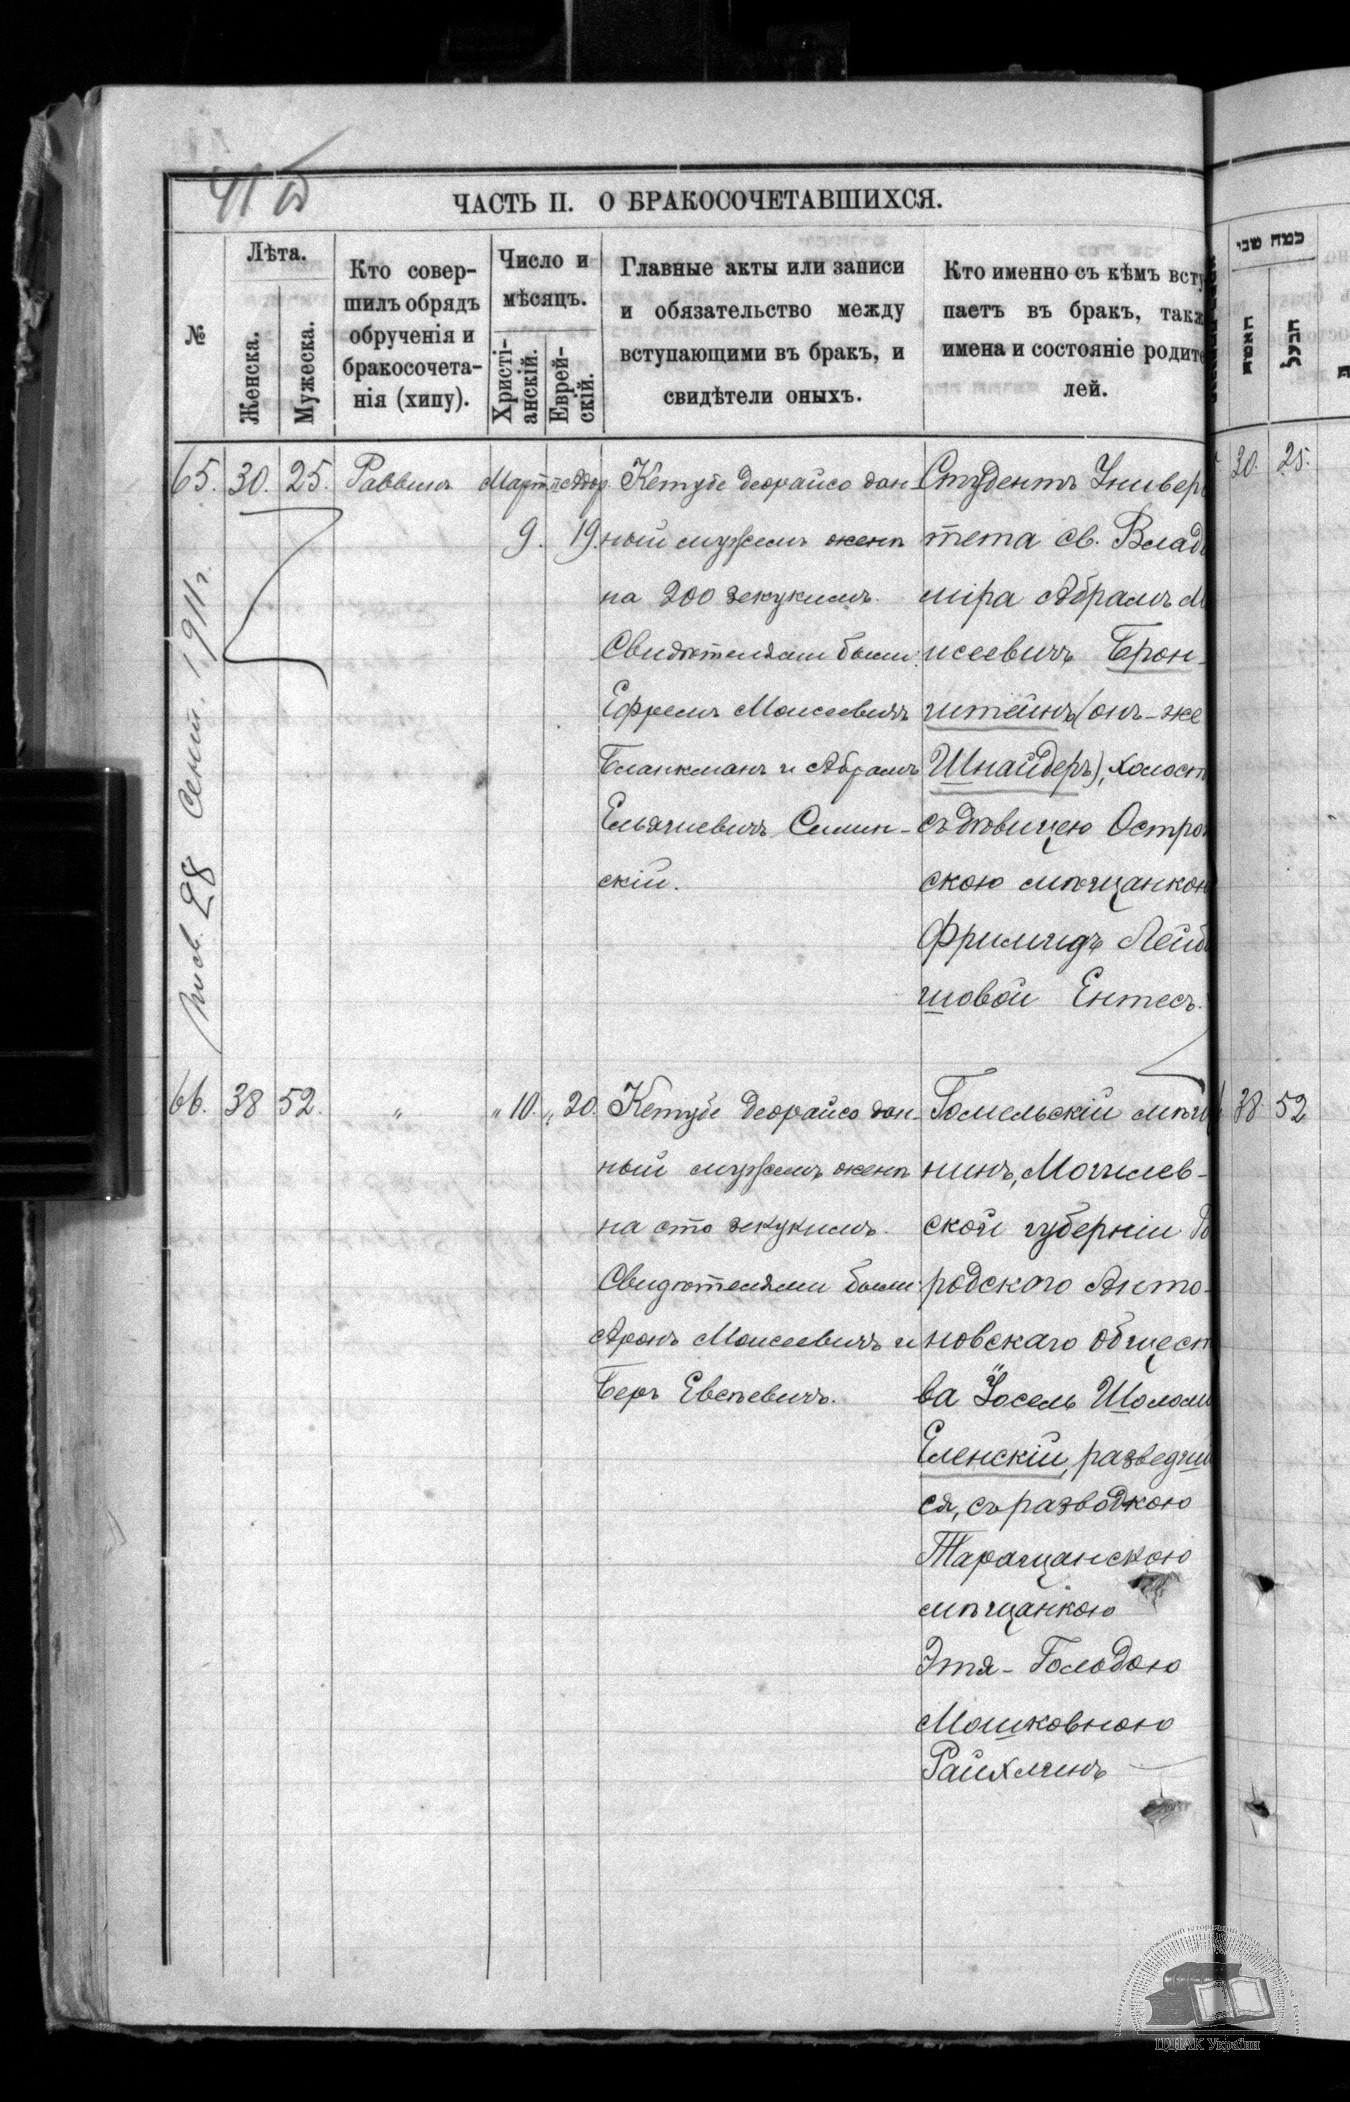 41 б
ЧАСТЬ II. О БРАКОСОЧЕТАВШИХСЯ.
№
Лѣта.
Женска.
Мужеска.
Кто совер-
шилъ обрядъ
обрученія и
бракосочета-
нія (хипу).
Число и
мѣсяцъ.
Христі-
анскій.
Еврей-
скій.
Главные акты или записи
и обязательство между
вступающими въ бракъ, и
свидѣтели оныхъ.
Кто именно съ кѣмъ всту
паетъ въ бракъ, такж
имена и состояніе родите
лей.
65. 30. 25. Раввинъ Мартъ 9. Адор 19.
Кетубе деорайсо дан-
ный мужемъ женѣ
на 200 зекукимъ.
Свидѣтелями были:
Ефремъ Моисеевичъ
Бланкманъ и Абрамъ
Ельячиевичъ Силин-
скій.
Студентъ Универс
тета св. Влади
міра Абрамъ М
исеевичъ Брон-
штейнъ (онъ-же
Шнайдеръ), холост
съ дѣвицею Остро
скою мѣщанкою
Фримчидъ Лейб
шовой Ентесъ.
28 Сент. 1911 г.
66. 38 52. " " 10. " 20.
Кетубе деорайсо дан-
ный мужемъ женѣ
на сто зекукимъ.
Свидѣтелями были:
Аронъ Моисеевичъ и
Беръ Евсѣевичъ.
Гомельскій мѣщ
нинъ, Могилев-
ской губерніи
родского Анто-
новскаго общест
ва Іосель Шолом
Еленскій, разведши
ся, съ разводкою
Таращанскою
мѣщанкою
Этя-Гольдою
Мошковною
Райхлинъ
כמה שני
האשה
הבעל
30. 25.
38 52
ЦДІАК України